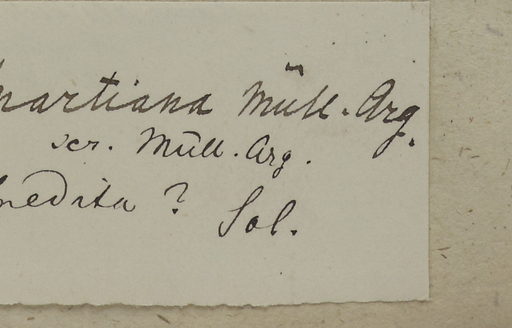 martiana Müll. Arg.
scr. Müll. Arg.
inedita? Sol.